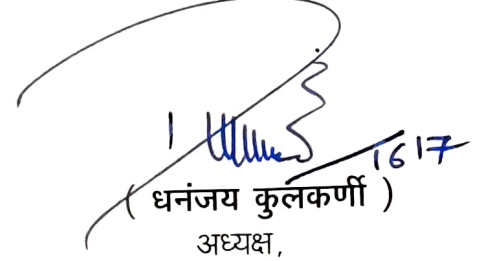 1617
( धनंजय कुलकर्णी )
अध्यक्ष,